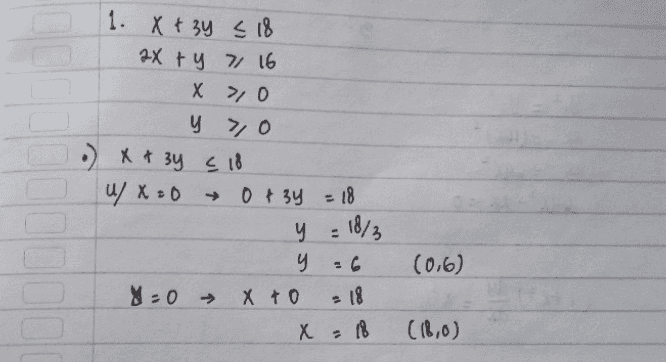 1. x + 3y ≤ 18
2x + y ≥ 16
x ≥ 0
y ≥ 0
•) x + 3y ≤ 18
u/ x = 0 → 0 + 3y = 18
y = 18/3
y = 6 (0,6)
y = 0 → x + 0 = 18
x = 18 (18,0)